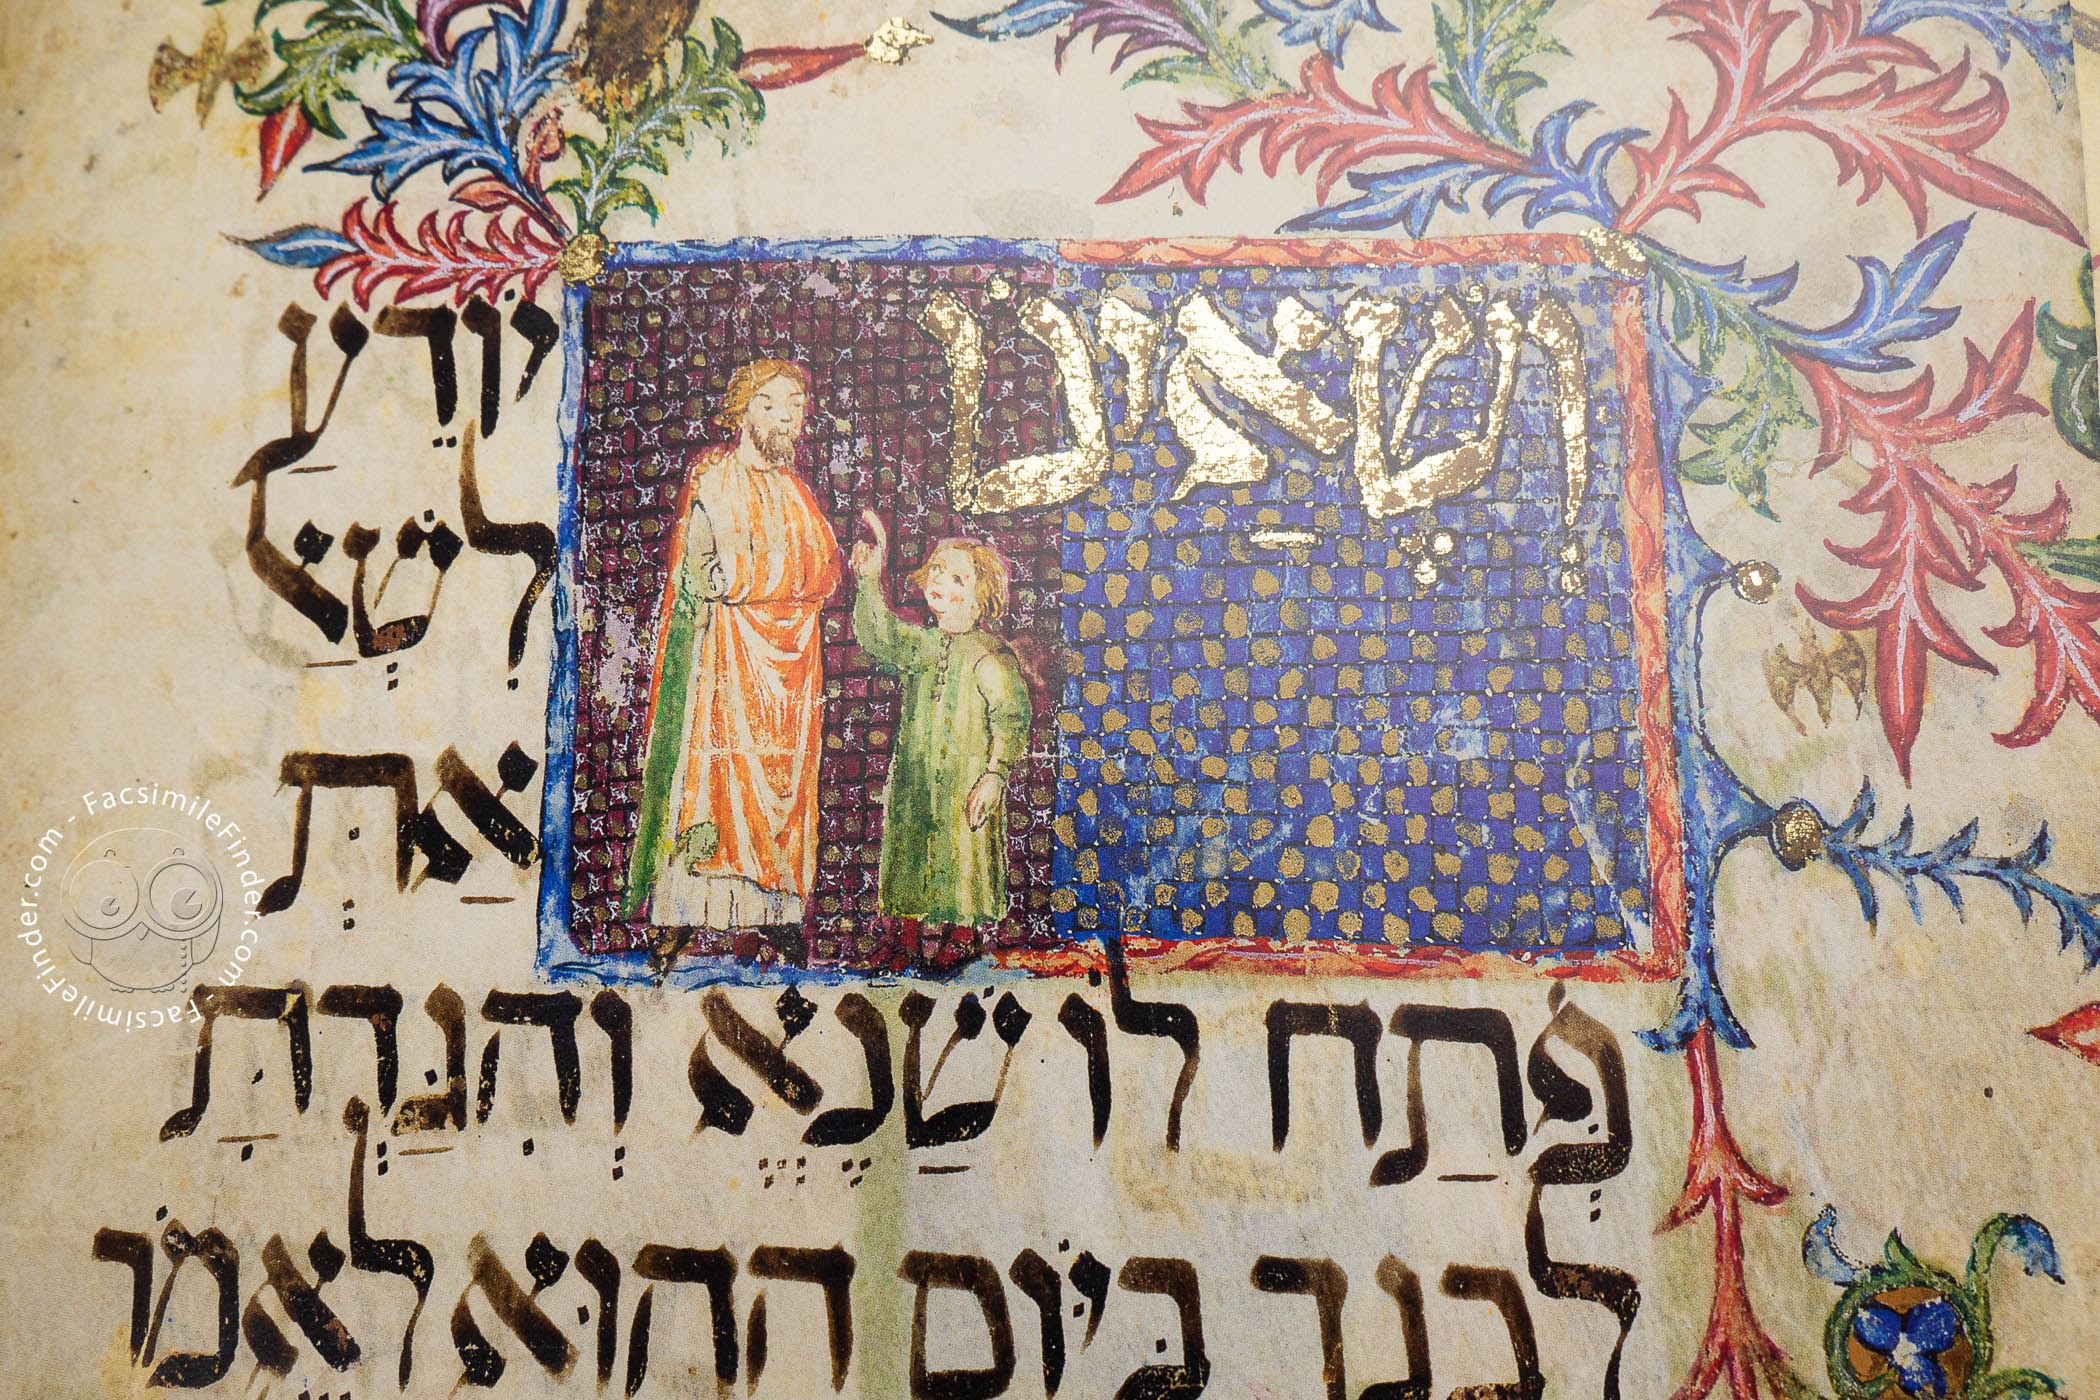 וְשֶׁאַינוֹ יוֹדֵעַ
לְשָׁאַל
אַתְּ
פְּתַח לוֹ שַׁנֶאֱ וְהִגַּדְתָּ
לְבִנְךָ בַּיּוֹם הַהוּא לֵאמֹר
FacsimileFinder.com - FacsimileFinder.com -